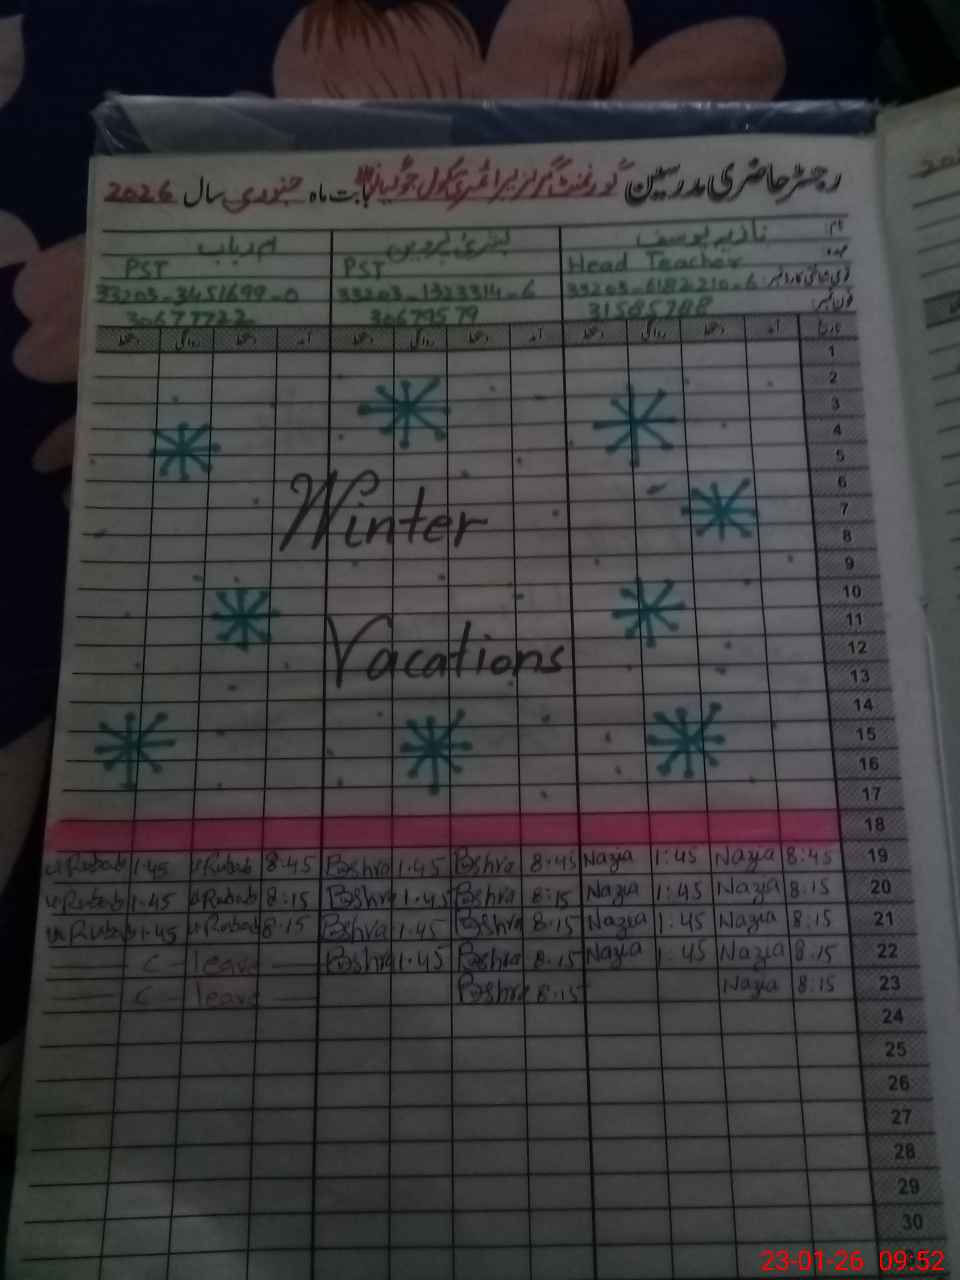 رجسٹر حاضری مدرسین گورنمنٹ گرلز پرائمری سکول بابت ماہ جنوری سال 2026
نام نازیہ یوسف بشریٰ پروین ام رباب
عہدہ Head Teacher PST PST
قومی شناختی کارڈ نمبر 33203-6182210-6 33203-1323314-6 33203-3451699-0
فون نمبر 31585788 30679579 30677722
تاریخ آمد دستخط روانگی دستخط آمد دستخط روانگی دستخط آمد دستخط روانگی دستخط
1
2
3
4
5
6
Winter 7
8
9
10
11
Vacations 12
13
14
15
16
17
18
u Rubab 1.45 u Rubab 8:45 Bshra 1.45 Bshra 8:45 Nazia 1:45 Nazia 8:45 19
u Rubab 1.45 u Rubab 8:15 Bshra 1.45 Bshra 8:15 Nazia 1:45 Nazia 8:15 20
u Rubab 1.45 u Rubab 8:15 Bshra 1.45 Bshra 8:15 Nazia 1:45 Nazia 8:15 21
C - leave Bshra 1.45 Bshra 8:15 Nazia 1:45 Nazia 8:15 22
C - leave Bshra 8:15 Nazia 8:15 23
24
25
26
27
28
29
30
23-01-26 09:52